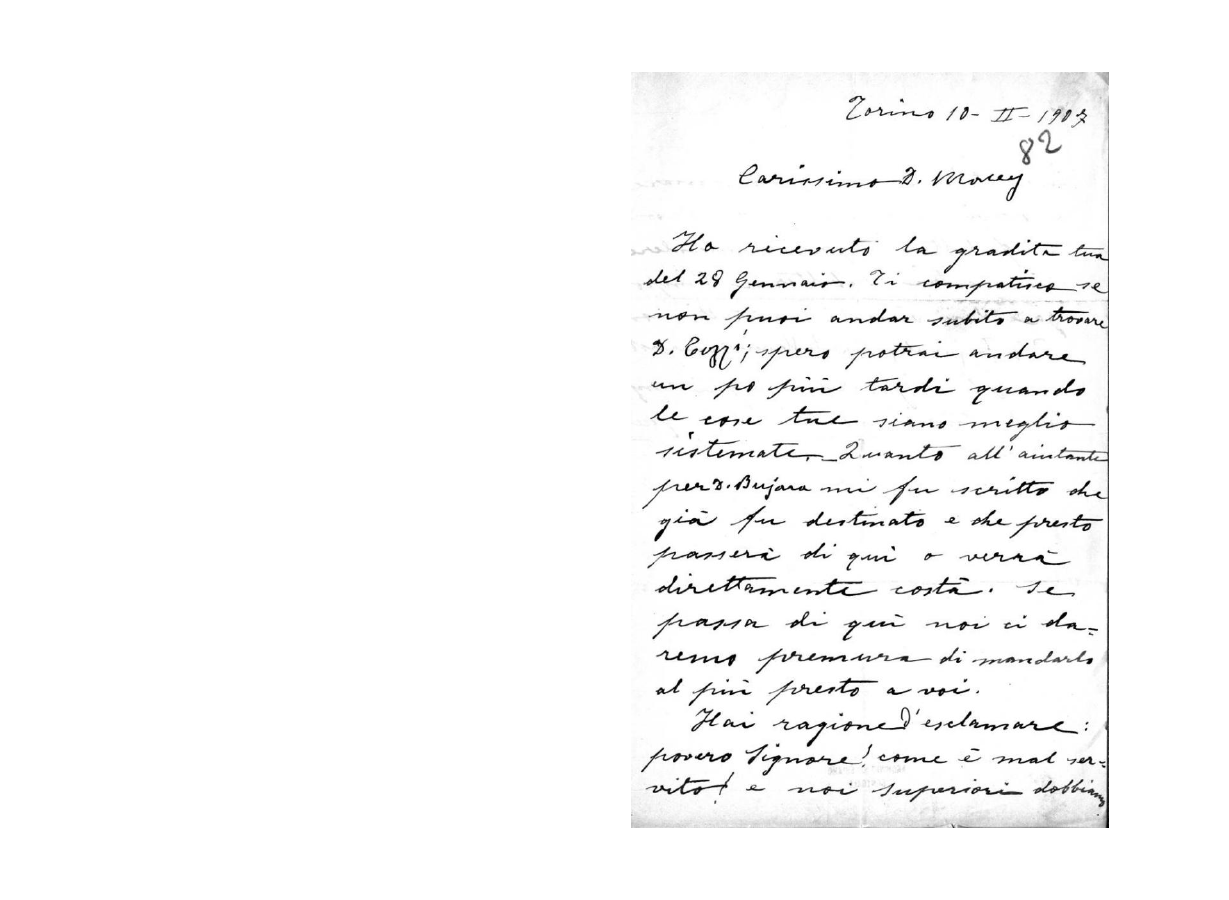 Torino 10 - II - 1907
82
Carissimo D. Macey
Ho ricevuto la gradita tua
del 28 Gennaio. Ti compatisco se
non puoi andar subito a trovare
D. Cozzi; spero potrai andare
un po più tardi quando
le cose tue siano meglio
sistemate. _ Quanto all'aiutante
per D. Bujara mi fu scritto che
già fu destinato e che presto
passerà di quì o verrà
direttamente costà. Se
passa di quì noi ci da=
remo premura di mandarlo
al più presto a voi.
Hai ragione d'esclamare:
povero Signore! come è mal ser=
vito! e noi superiori dobbiamo